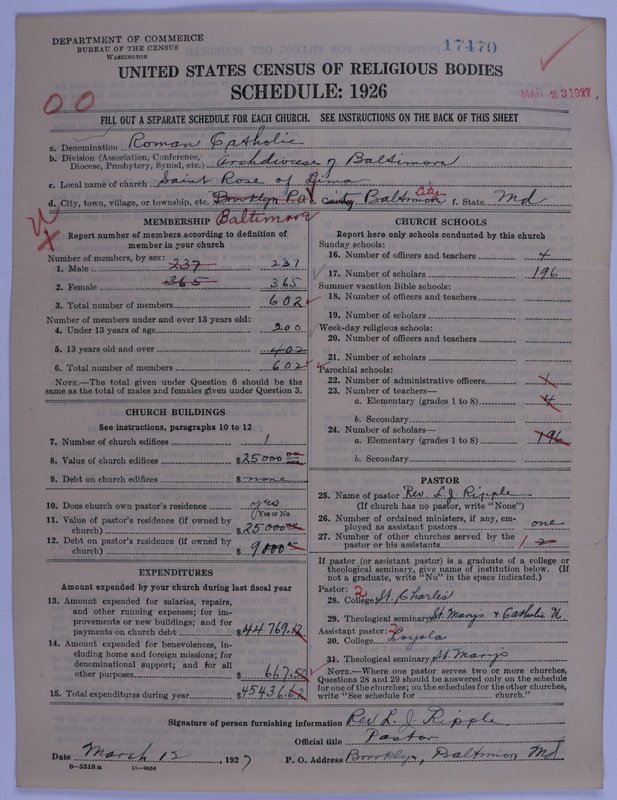 DEPARTMENT OF COMMERCE
BUREAU OF THE CENSUS
WASHINGTON
17470
UNITED STATES CENSUS OF RELIGIOUS BODIES
SCHEDULE: 1926
MAR 23 1927
00
FILL OUT A SEPARATE SCHEDULE FOR EACH CHURCH. SEE INSTRUCTIONS ON THE BACK OF THIS SHEET
a. Denomination Roman Catholic
b. Division (Association, Conference, Diocese, Presbytery, Synod, etc.) Archdiocese of Baltimore
c. Local name of church Saint Rose of Lima
d. City, town, village, or township, etc. Brooklyn P.O. e. County Baltimore City f. State Md
Baltimore
MEMBERSHIP
Report number of members according to definition of
member in your church
Number of members, by sex:
1. Male 237 237
2. Female 365 365
3. Total number of members 602
Number of members under and over 13 years old:
4. Under 13 years of age 200
5. 13 years old and over 402
6. Total number of members 602
NOTE.—The total given under Question 6 should be the
same as the total of males and females given under Question 3.
CHURCH BUILDINGS
See instructions, paragraphs 10 to 12
7. Number of church edifices 1
8. Value of church edifices $25000 00
9. Debt on church edifices $none
10. Does church own pastor's residence yes
(Yes or No)
11. Value of pastor's residence (if owned by
church) $25000
12. Debt on pastor's residence (if owned by
church) $9000
EXPENDITURES
Amount expended by your church during last fiscal year
13. Amount expended for salaries, repairs,
and other running expenses; for im-
provements or new buildings; and for
payments on church debt $44769.12
14. Amount expended for benevolences, in-
cluding home and foreign missions; for
denominational support; and for all
other purposes $667.50
15. Total expenditures during year $45436.62
CHURCH SCHOOLS
Report here only schools conducted by this church
Sunday schools:
16. Number of officers and teachers 4
17. Number of scholars 196
Summer vacation Bible schools:
18. Number of officers and teachers
19. Number of scholars
Week-day religious schools:
20. Number of officers and teachers
21. Number of scholars
Parochial schools:
22. Number of administrative officers 1
23. Number of teachers—
a. Elementary (grades 1 to 8) 4
b. Secondary
24. Number of scholars—
a. Elementary (grades 1 to 8) 196
b. Secondary
PASTOR
25. Name of pastor Rev. L J Ripple
(If church has no pastor, write "None")
26. Number of ordained ministers, if any, em-
ployed as assistant pastors one
27. Number of other churches served by the
pastor or his assistants 1 2
If pastor (or assistant pastor) is a graduate of a college or
theological seminary, give name of institution below. (If
not a graduate, write "No" in the space indicated.)
Pastor: 2
28. College St. Charles
29. Theological seminary St. Marys & Catholic U
Assistant pastor: 2
30. College Loyola
31. Theological seminary St. Marys
NOTE.—Where one pastor serves two or more churches,
Questions 28 and 29 should be answered only on the schedule
for one of the churches; on the schedules for the other churches,
write "See schedule for church."
Signature of person furnishing information Rev L. J. Ripple
Official title Pastor
Date March 12, 1927 P. O. Address Brooklyn, Baltimore Md
8—3518 a 11—9664